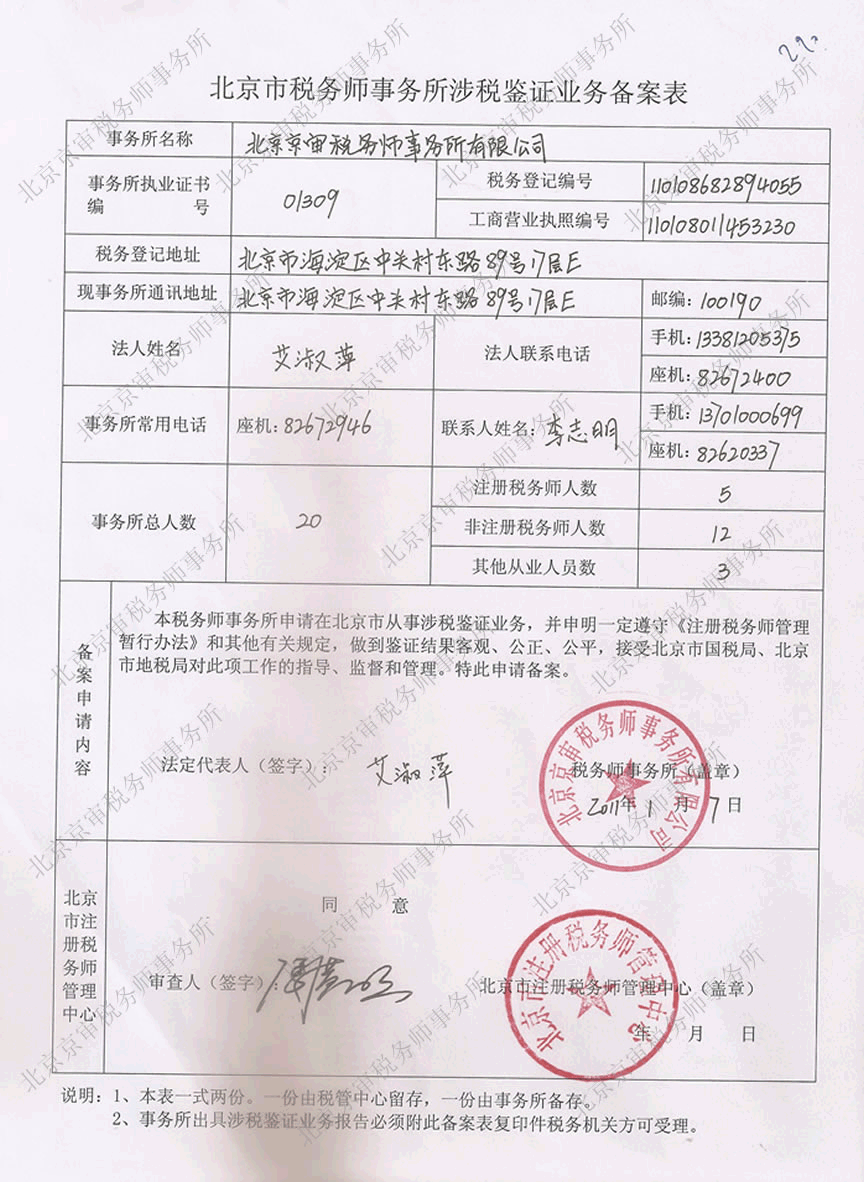 292
北京市税务师事务所涉税鉴证业务备案表
事务所名称 北京京审税务师事务所有限公司
事务所执业证书
编 号
01309
税务登记编号 110108682894055
工商营业执照编号 110108011453230
税务登记地址 北京市海淀区中关村东路89号17层E
现事务所通讯地址 北京市海淀区中关村东路89号17层E 邮编:100190
法人姓名 艾淑萍 法人联系电话
手机:13381205375
座机:82672400
事务所常用电话 座机:82672946 联系人姓名:李志明
手机:13701000699
座机:82620337
事务所总人数 20
注册税务师人数 5
非注册税务师人数 12
其他从业人员数 3
备案申请内容
本税务师事务所申请在北京市从事涉税鉴证业务,并申明一定遵守《注册税务师管理
暂行办法》和其他有关规定,做到鉴证结果客观、公正、公平,接受北京市国税局、北京
市地税局对此项工作的指导、监督和管理。特此申请备案。
法定代表人(签字): 艾淑萍 税务师事务所(盖章)
2011年 1 月 7 日
北京京审税务师事务所有限公司
北京
市注
册税
务师
管理
中心
同 意
审查人(签字): 北京市注册税务师管理中心(盖章)
年 月 日
北京市注册税务师管理中心
说明:1、本表一式两份。一份由税管中心留存,一份由事务所备存。
2、事务所出具涉税鉴证业务报告必须附此备案表复印件税务机关方可受理。
北京京审税务师事务所